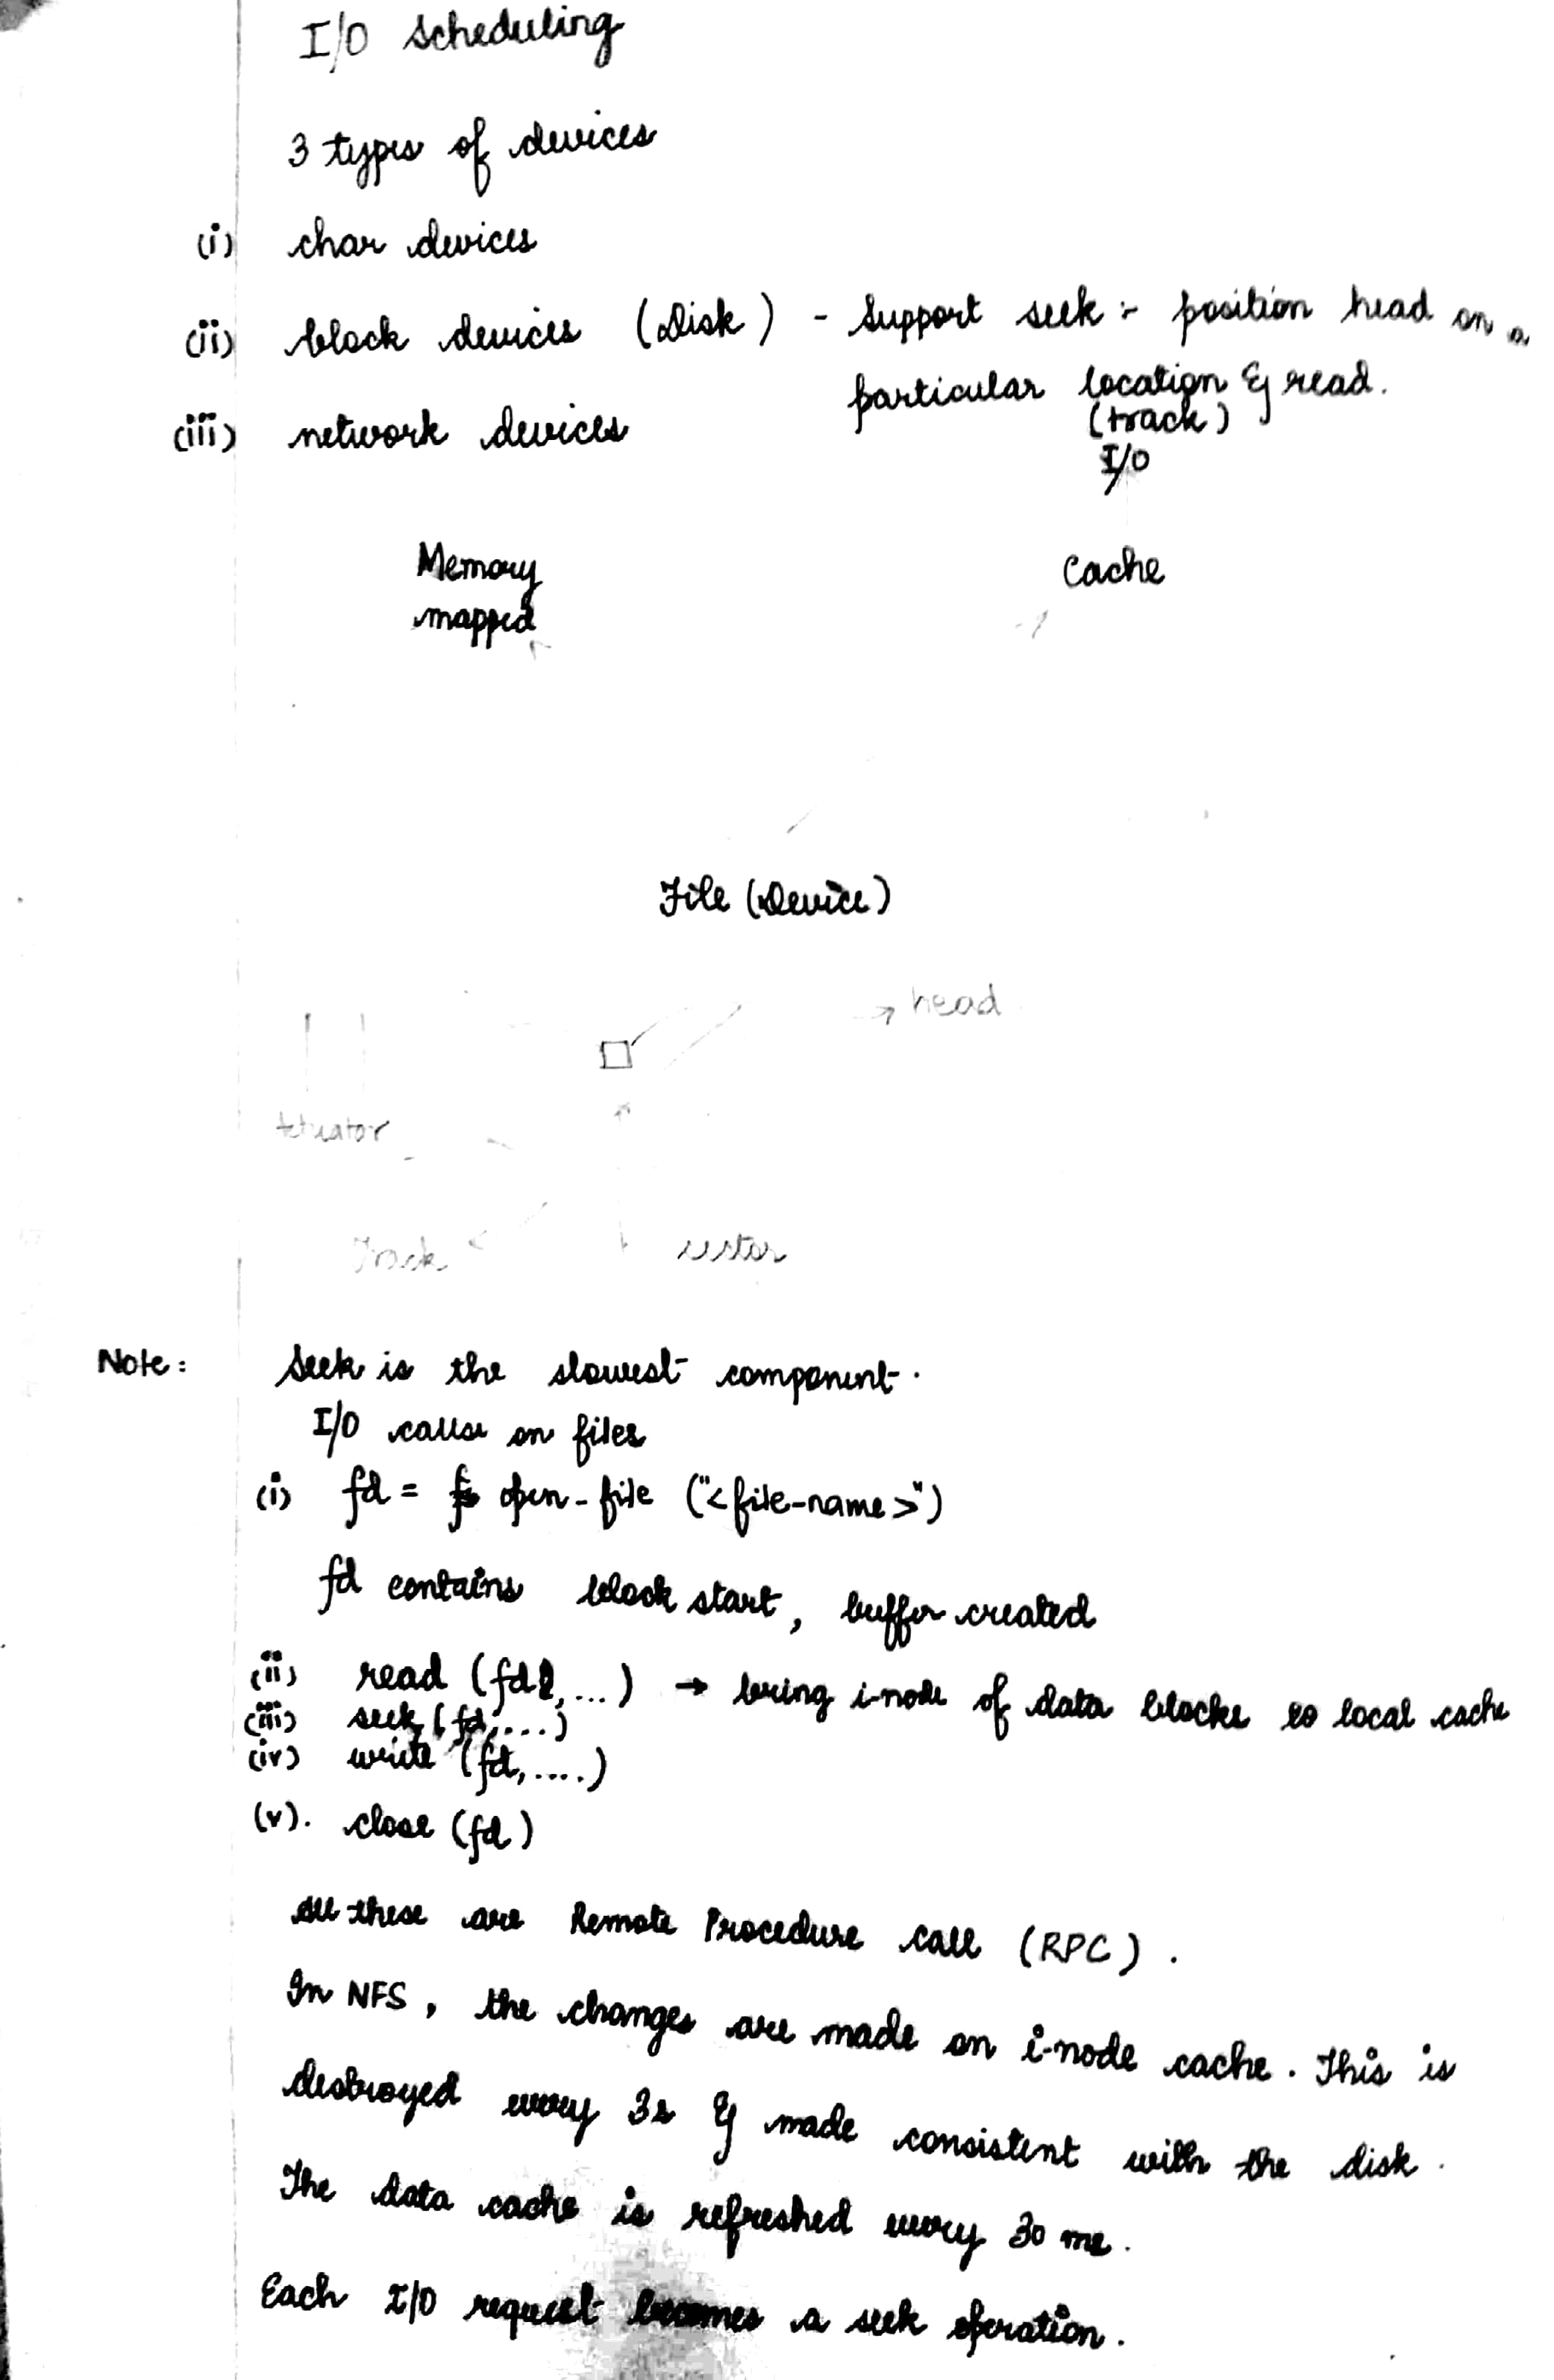 I/O Scheduling
3 types of devices
(i) char devices
(ii) block devices (Disk) - Support seek :- position head on a
particular location & read.
(track)
(iii) network devices
I/O
Memory
mapped
Cache
File (Device)
→ head
Actuator
Track
sector
Note: Seek is the slowest component.
I/O calls on files
(i) fd = open-file ("<file-name>")
fd contains block start, buffer created
(ii) read (fd,...) → bring i-node of data blocks to local cache
(iii) seek (fd,...)
(iv) write (fd,....)
(v). close (fd)
All these are Remote Procedure call (RPC).
In NFS, the changes are made on i-node cache. This is
destroyed every 3s & made consistent with the disk.
The data cache is refreshed every 30 ms.
Each I/O request becomes a seek operation.